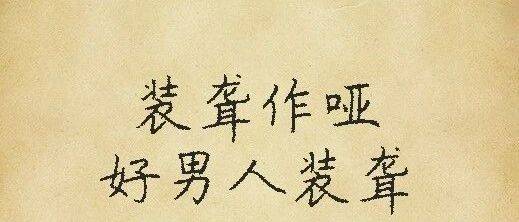 装聋作哑
好男人装聋